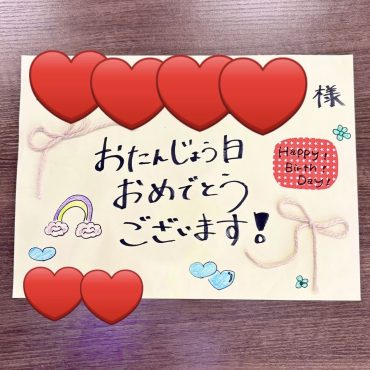 様
おたんじょう日
おめでとう
ございます!
Happy!
Birth!
Day!